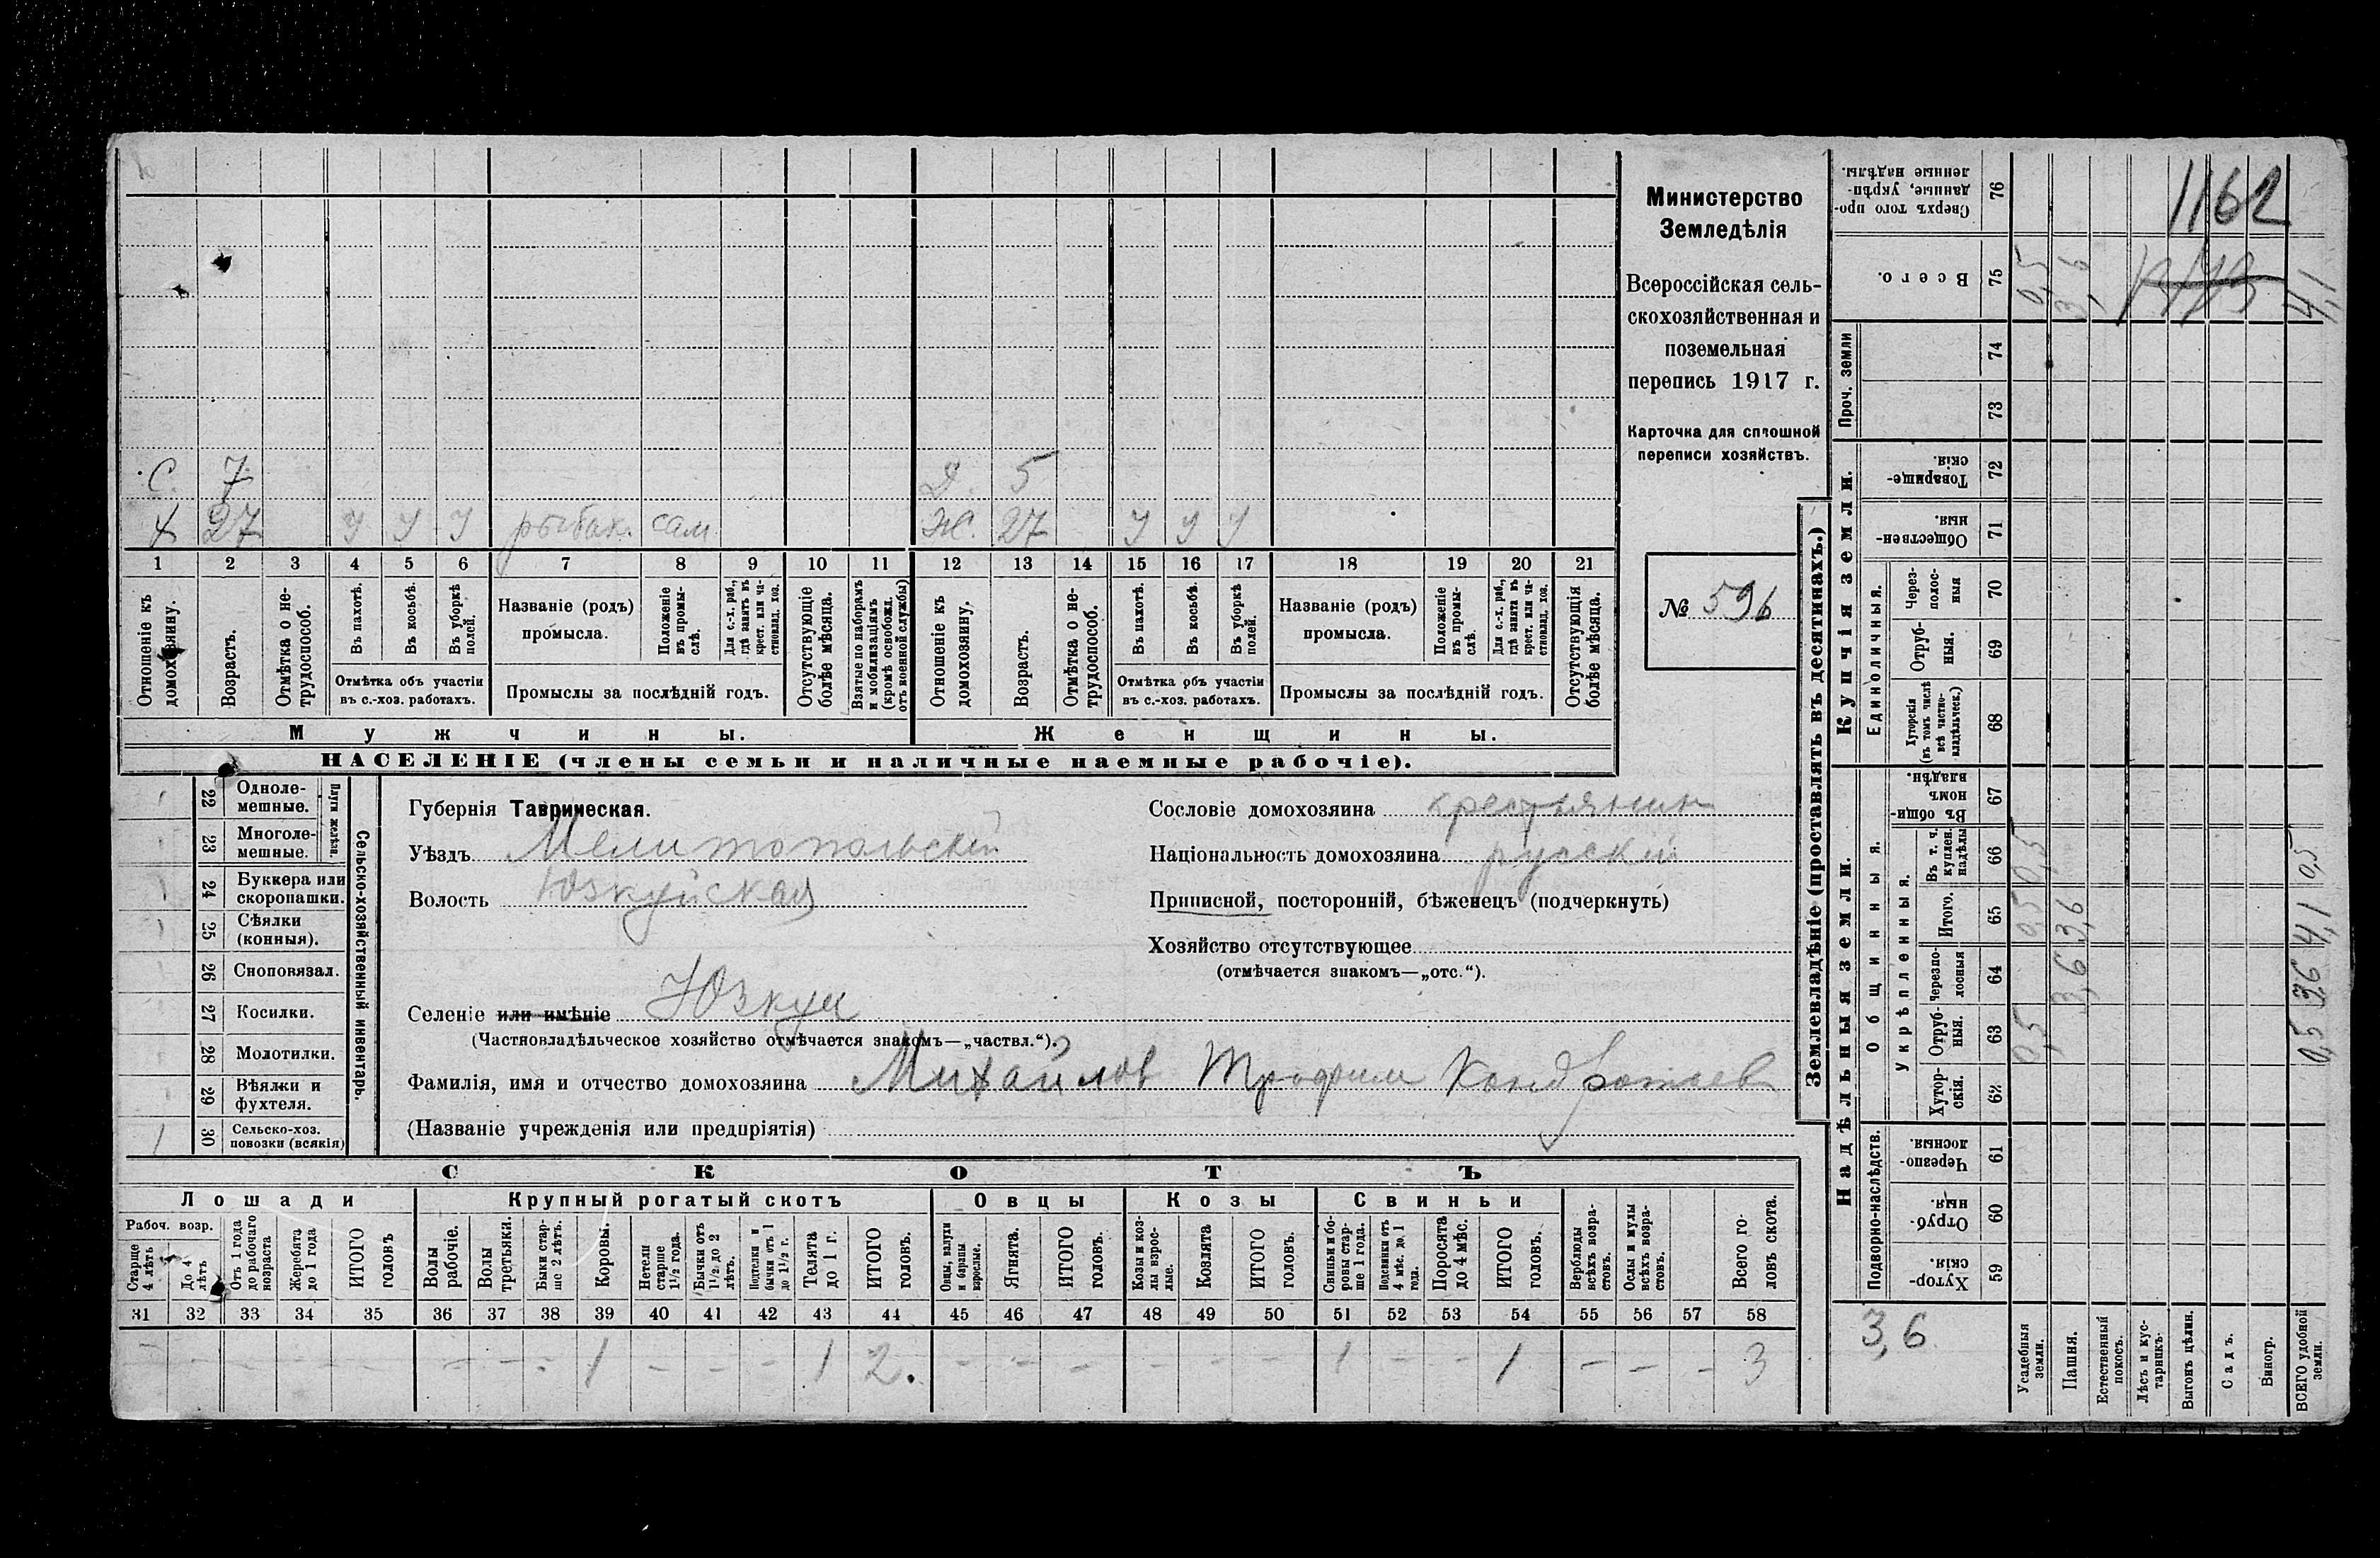 С. 7 Д. 5
Х 27 У У У рыбак. сам Ж. 27 У У У
1 2 3 4 5 6 7 8 9 10 11 12 13 14 15 16 17 18 19 20 21
Отношеніе къ домохозяину.
Возрастъ.
Отмѣтка о нетрудоспособ.
Въ пахотѣ.
Въ косьбѣ.
Въ уборкѣ полей.
Отмѣтка объ участіи въ с.-хоз. работахъ.
Названіе (родъ) промысла.
Положеніе въ промыслѣ.
Для с.-х. раб., гдѣ занятъ въ крест. или частновлад. хоз.
Промыслы за послѣдній годъ.
Отсутствующіе болѣе мѣсяца.
Взятые по наборамъ и мобилизаціямъ (кромѣ освобожд. отъ военной службы)
Отношеніе къ домохозяину.
Возрастъ.
Отмѣтка о нетрудоспособ.
Въ пахотѣ.
Въ косьбѣ.
Въ уборкѣ полей.
Отмѣтка объ участіи въ с.-хоз. работахъ.
Названіе (родъ) промысла.
Положеніе въ промыслѣ.
Для с.-х. раб., гдѣ занята въ крест. или частновлад. хоз.
Промыслы за послѣдній годъ.
Отсутствующія болѣе мѣсяца.
Мужчины. Женщины.
НАСЕЛЕНІЕ (члены семьи и наличные наемные рабочіе).
Министерство
Земледѣлія
Всероссійская сель-
скохозяйственная и
поземельная
перепись 1917 г.
Карточка для сплошной
переписи хозяйствъ.
№ 596
Сельско-хозяйственный инвентарь.
Плуги желѣзн.
22 Однолемешные.
23 Многолемешные.
24 Буккера или скоропашки.
25 Сѣялки (конныя).
26 Сноповязал.
27 Косилки.
28 Молотилки.
29 Вѣялки и фухтеля.
30 Сельско-хоз. повозки (всякія) 1
Губернія Таврическая.
Уѣздъ Мелитопольскій
Волость Юзкуйская
Селеніе или имѣніе Юзкуи
(Частновладѣльческое хозяйство отмѣчается знакомъ—„частвл.“).
Фамилія, имя и отчество домохозяина Михайлов Трофим Кондратьев
(Названіе учрежденія или предпріятія)
Сословіе домохозяина крестьянин
Національность домохозяина русский
Приписной, посторонній, бѣженецъ (подчеркнуть)
Хозяйство отсутствующее
(отмѣчается знакомъ—„отс.“).
СКОТЪ
Лошади Крупный рогатый скотъ Овцы Козы Свиньи
Рабоч. возр.
Старше 4 лѣтъ
До 4 лѣтъ
Отъ 1 года до рабочаго возраста
Жеребята до 1 года
ИТОГО головъ
Волы рабочіе.
Волы третьяки.
Быки старше 2 лѣтъ.
Коровы.
Нетели старше 1½ года.
Бычки отъ 1½ до 2 лѣтъ.
Подтелки и бычки отъ 1 до 1½ г.
Телята до 1 г.
ИТОГО головъ.
Овцы, валухи и бараны взрослые.
Ягнята.
ИТОГО головъ.
Козы и козлы взрослые.
Козлята
ИТОГО головъ.
Свиньи и боровы старше 1 года.
Подсвинки отъ 4 мѣс. до 1 года.
Поросята до 4 мѣс.
ИТОГО головъ.
Верблюды всѣхъ возрастовъ.
Ослы и мулы всѣхъ возрастовъ.
Всего головъ скота.
31 32 33 34 35 36 37 38 39 40 41 42 43 44 45 46 47 48 49 50 51 52 53 54 55 56 57 58
- - - - - - - - 1 - - - 1 2. - - - - - - 1 - - 1 - - - 3
Землевладѣніе (проставлять въ десятинахъ.)
Надѣльныя земли. Купчія земли. Проч. земли
Подворно-наслѣдств.
Общинныя.
Укрѣпленныя.
Единоличныя.
59 Хуторскія.
60 Отрубныя.
61 Черезполосныя.
62 Хуторскія.
63 Отрубныя.
64 Черезполосныя
65 Итого.
66 Въ т. ч. куплен. надѣлы
67 Въ общинномъ владѣн.
68 Хуторскія (въ томъ числѣ всѣ частновладѣльческ.)
69 Отрубныя.
70 Черезполосныя
71 Общественныя.
72 Товарищескія.
73
74
75 Всего.
76 Сверхъ того проданные, укрѣпленные надѣлы.
3,6
Усадебныя земли. 0,5 0,5 0,5 0,5
Пашня. 3,6 3,6 3,6
Естественный покосъ.
Лѣсъ и кустарникъ.
Выгонъ цѣлин.
Садъ.
Виногр.
ВСЕГО удобной земли. 0,5 3,6 4,1 0,5 4,1
1162